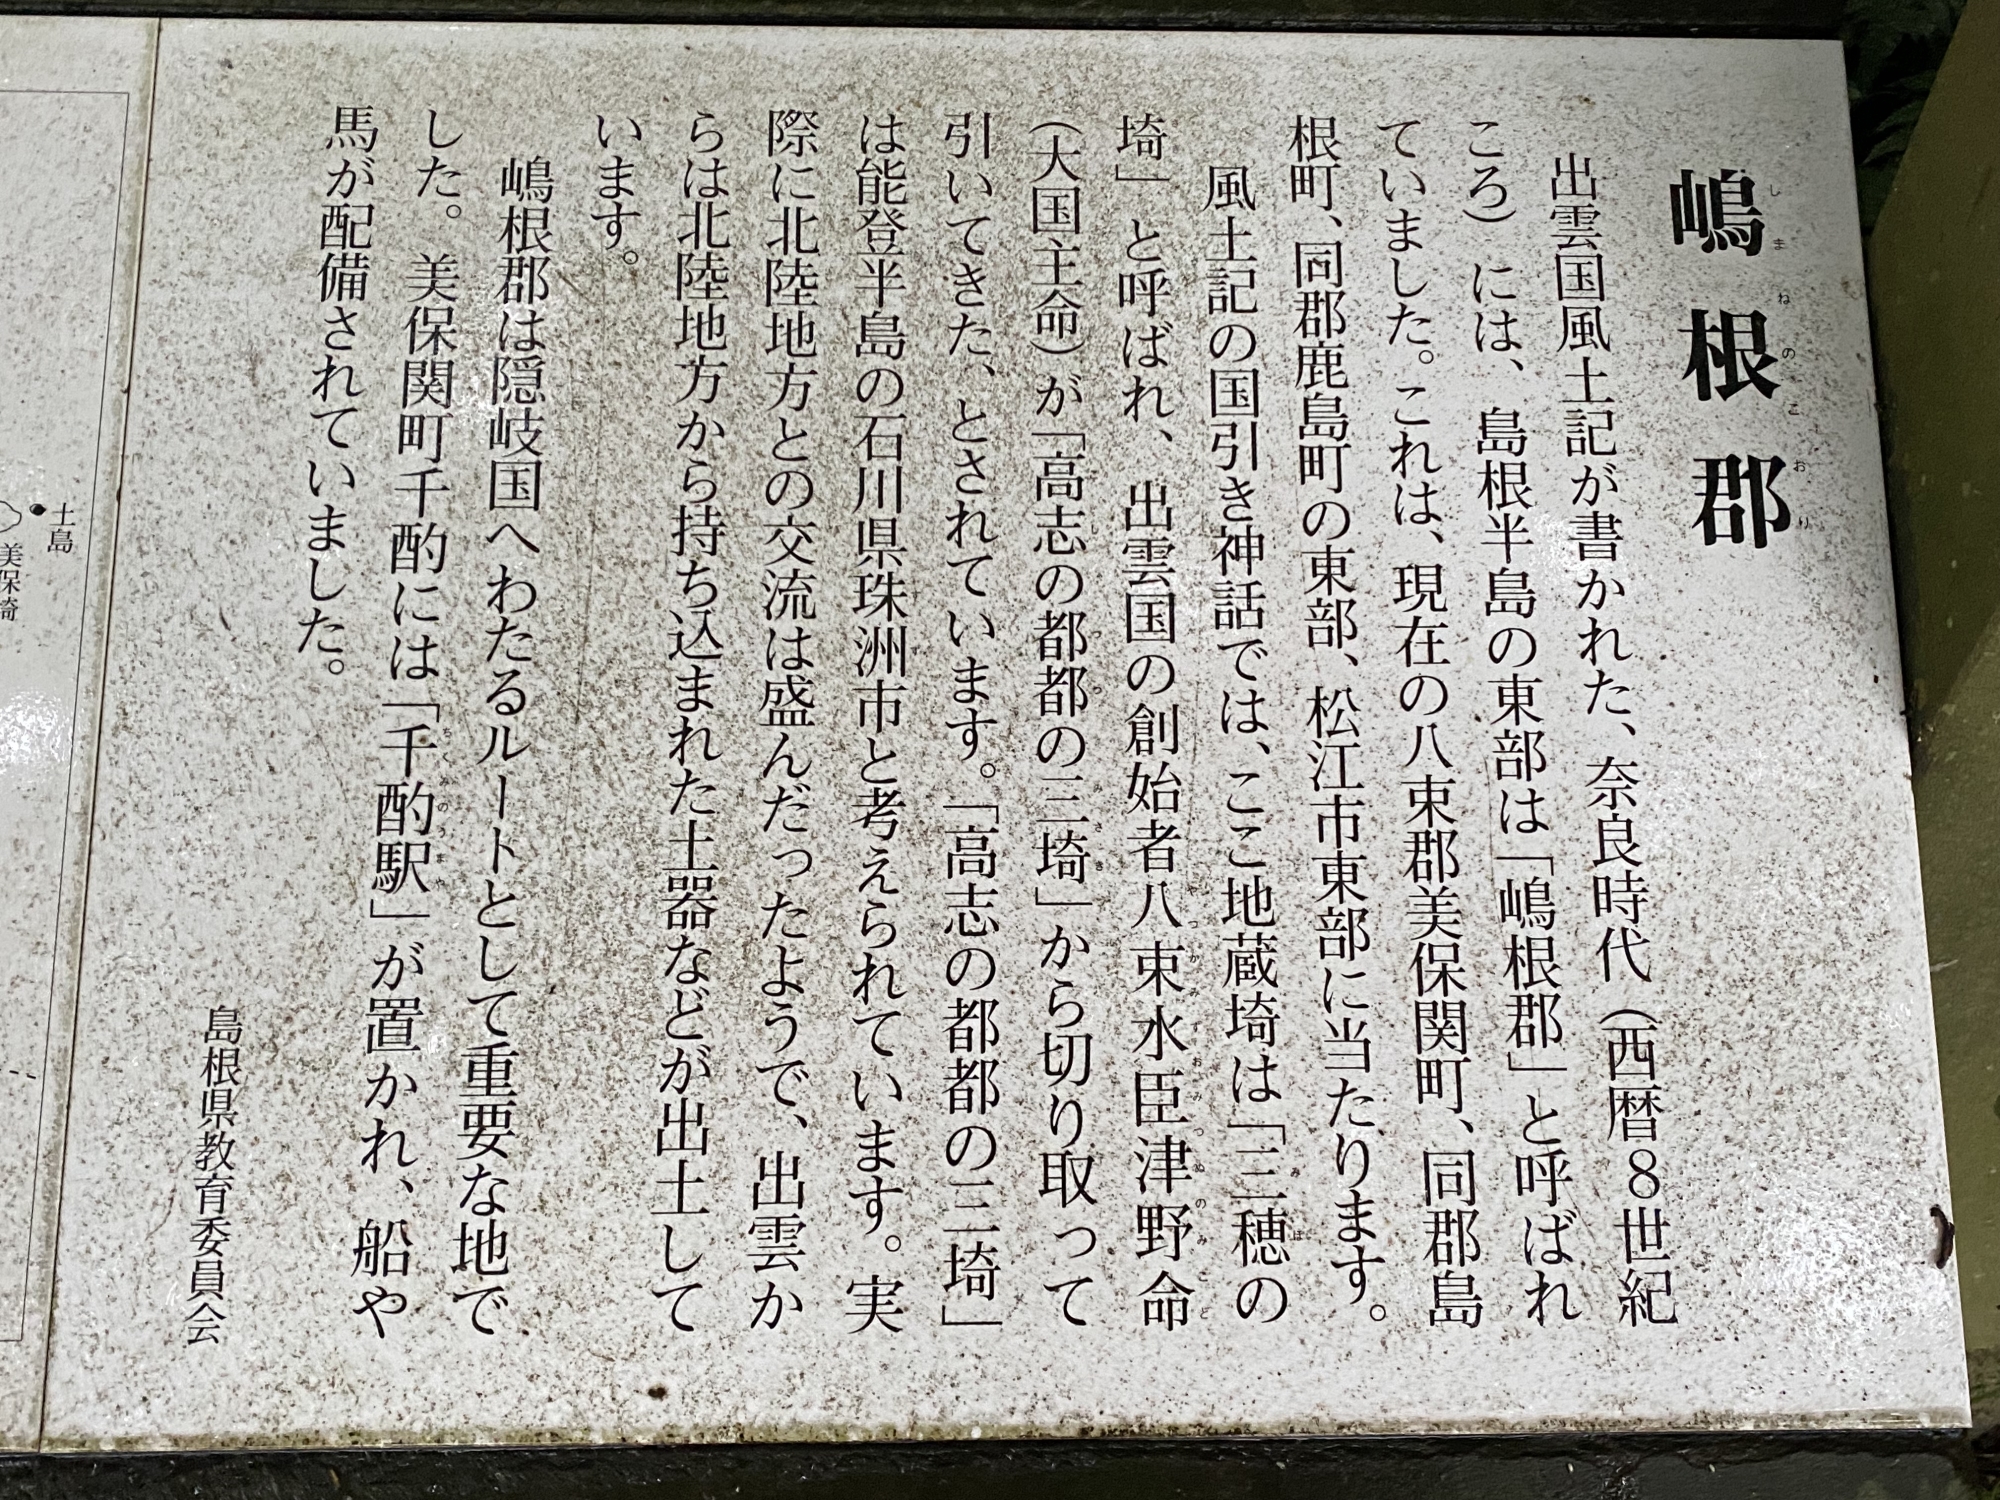 嶋根郡
しまねのこおり
出雲国風土記が書かれた、奈良時代（西暦８世紀
ころ）には、島根半島の東部は「嶋根郡」と呼ばれ
ていました。これは、現在の八束郡美保関町、同郡島
根町、同郡鹿島町の東部、松江市東部に当たります。
風土記の国引き神話では、ここ地蔵埼は「三穂の
埼」と呼ばれ、出雲国の創始者八束水臣津野命
（大国主命）が「高志の都都の三埼」から切り取って
引いてきた、とされています。「高志の都都の三埼」
は能登半島の石川県珠洲市と考えられています。実
際に北陸地方との交流は盛んだったようで、出雲か
らは北陸地方から持ち込まれた土器などが出土して
います。
嶋根郡は隠岐国へわたるルートとして重要な地で
した。美保関町千酌には「千酌駅」が置かれ、船や
馬が配備されていました。
島根県教育委員会
土島
美保埼